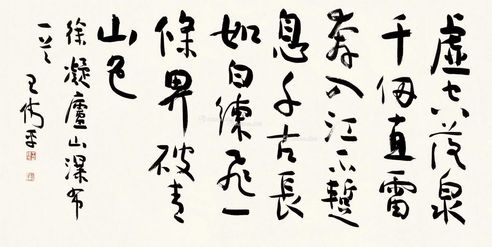 虛空落泉
千仞直雷
奔入江不暫
息千古長
如白練飛一
條界破青
山色
徐凝廬山瀑布
一首 王偉平